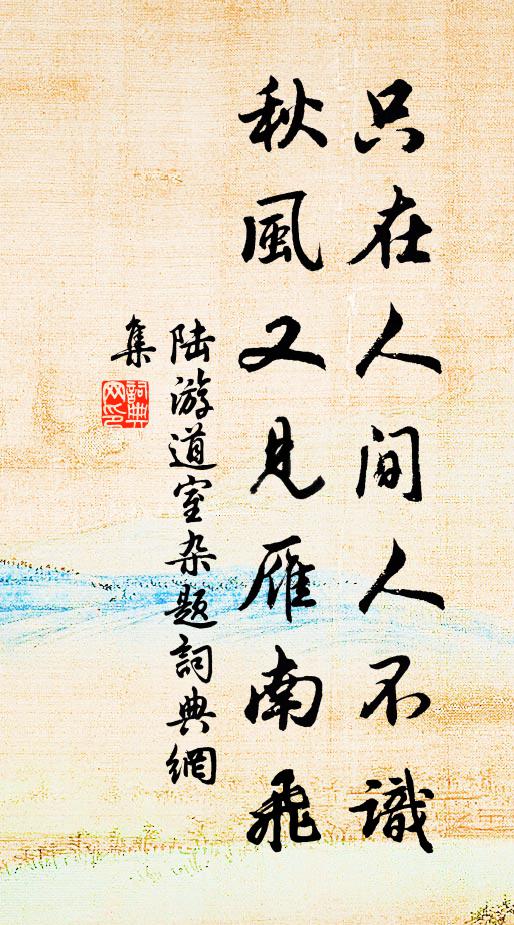 只在人间人不識
秋風又見雁南飛
陆游道室杂题詞典網
集
詞典
网印